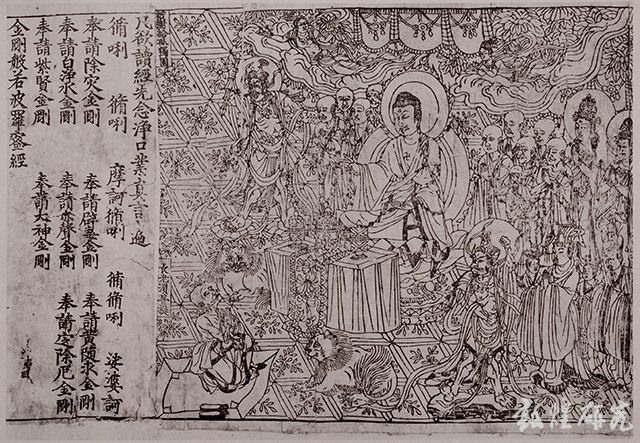 凡欲讀經先念淨口業真言一遍
脩唎 脩唎 摩訶脩唎 脩脩唎 娑婆訶
奉請除灾金剛 奉請辟毒金剛 奉請黃隨求金剛
奉請白淨水金剛 奉請赤聲金剛 奉請定除厄金剛
奉請紫賢金剛 奉請大神金剛
金剛般若波羅蜜經
敦煌研究